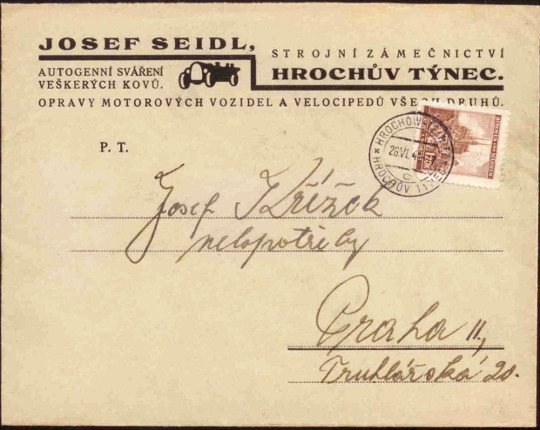 JOSEF SEIDL,
STROJNÍ ZÁMEČNICTVÍ
AUTOGENNÍ SVÁŘENÍ
VEŠKERÝCH KOVŮ.
HROCHŮV TÝNEC.
OPRAVY MOTOROVÝCH VOZIDEL A VELOCIPEDŮ VŠECH DRUHŮ.
P. T.
Josef Křížek
velopotřeby
Praha II.,
Truhlářská 20.